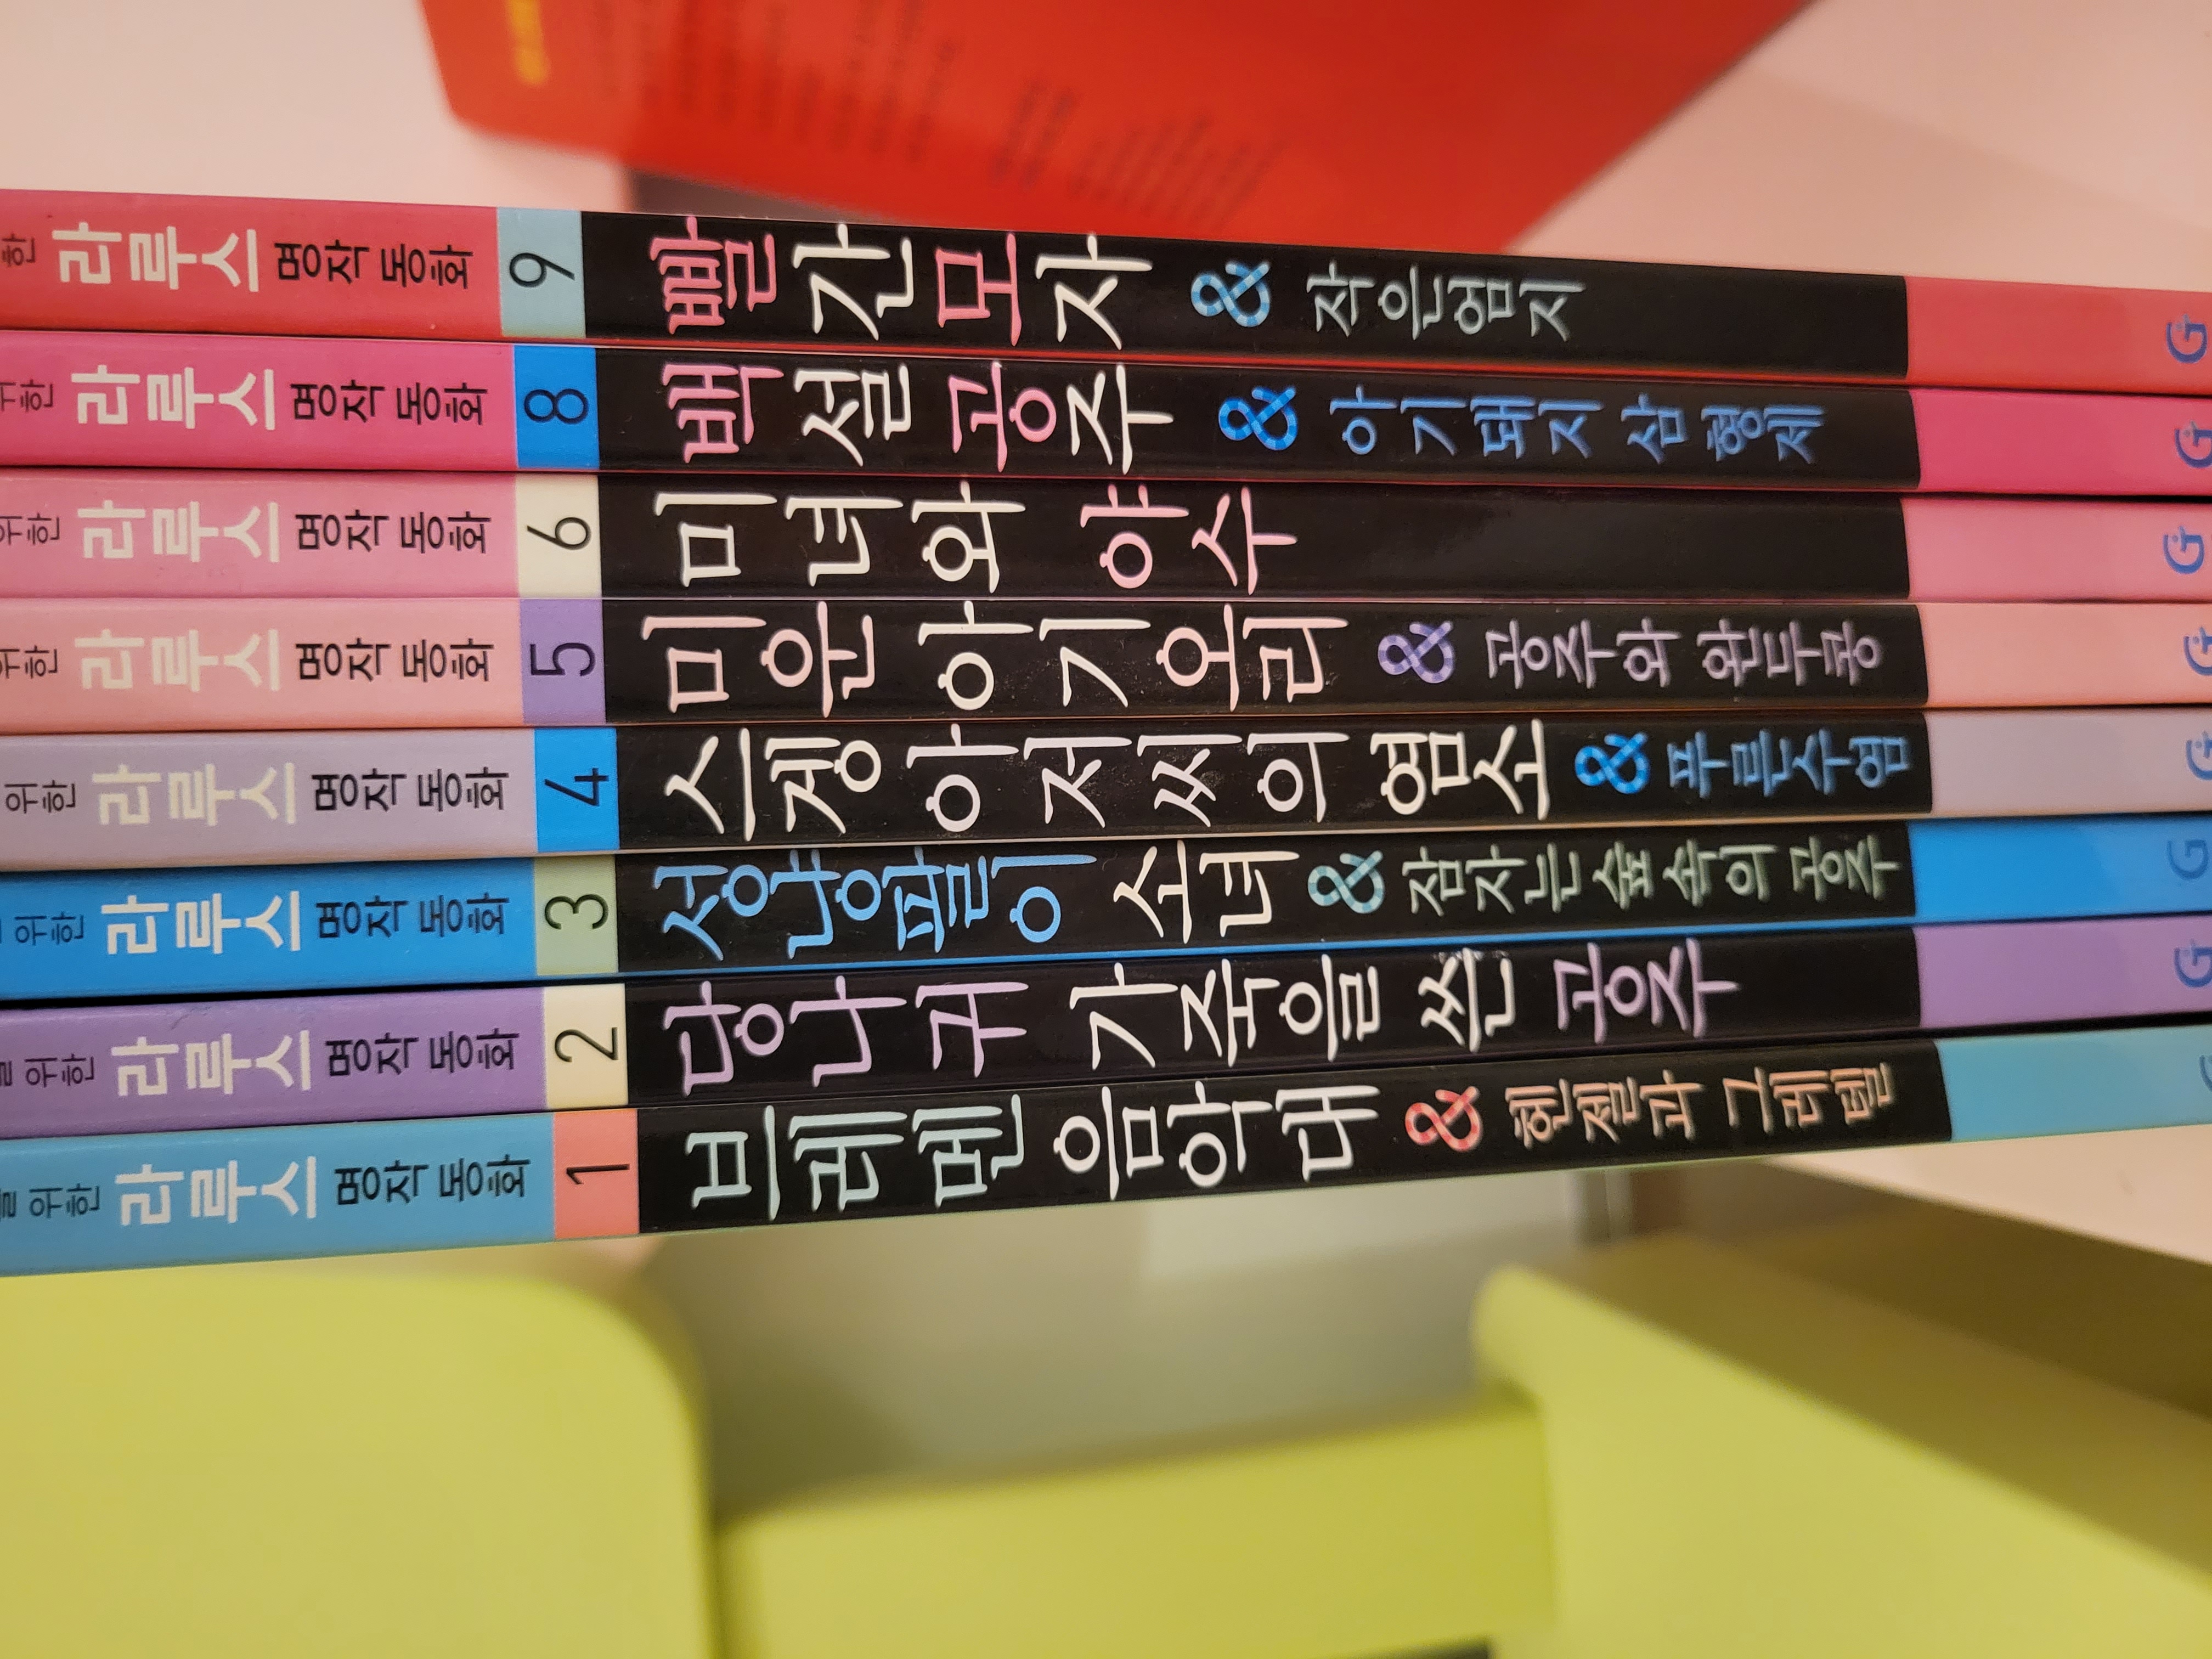 한 라루스 명작 동화 9 빨간 모자 & 작은엄지 G
위한 라루스 명작 동화 8 백설 공주 & 아기 돼지 삼 형제 G
위한 라루스 명작 동화 6 미녀와 야수 G
위한 라루스 명작 동화 5 미운 아기 오리 & 공주와 완두콩 G
위한 라루스 명작 동화 4 스갱 아저씨의 염소 & 푸른수염 G
위한 라루스 명작 동화 3 성냥팔이 소녀 & 잠자는 숲 속의 공주 G
를 위한 라루스 명작 동화 2 당나귀 가죽을 쓴 공주 G
를 위한 라루스 명작 동화 1 브레멘 음악대 & 헨젤과 그레텔